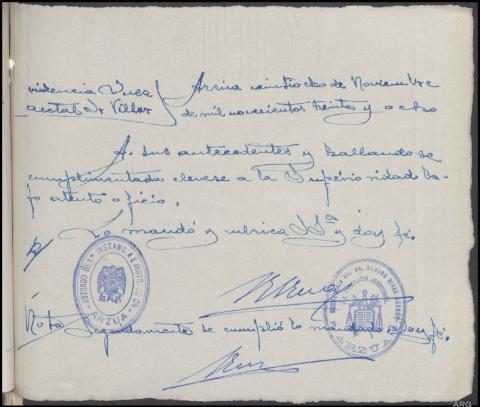 videncia Juez Arzúa veintiocho de Noviembre
acctal Sr Villar de mil novecientos treinta y ocho
A sus antecedentes y hallandose
cumplimentada elevese a la Superioridad ba-
jo atento oficio,
Lo mandó y rubrica SSª y doy fé.
JUZGADO DE 1ª INSTANCIA E INSTRUCCION
ARZUA
ARZÚA
Nota Seguidamente se cumplió lo mandado doy fé.